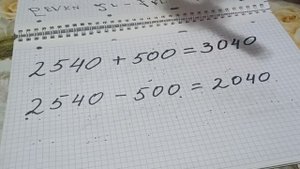 2540 + 500 = 3040
2540 - 500 = 2040